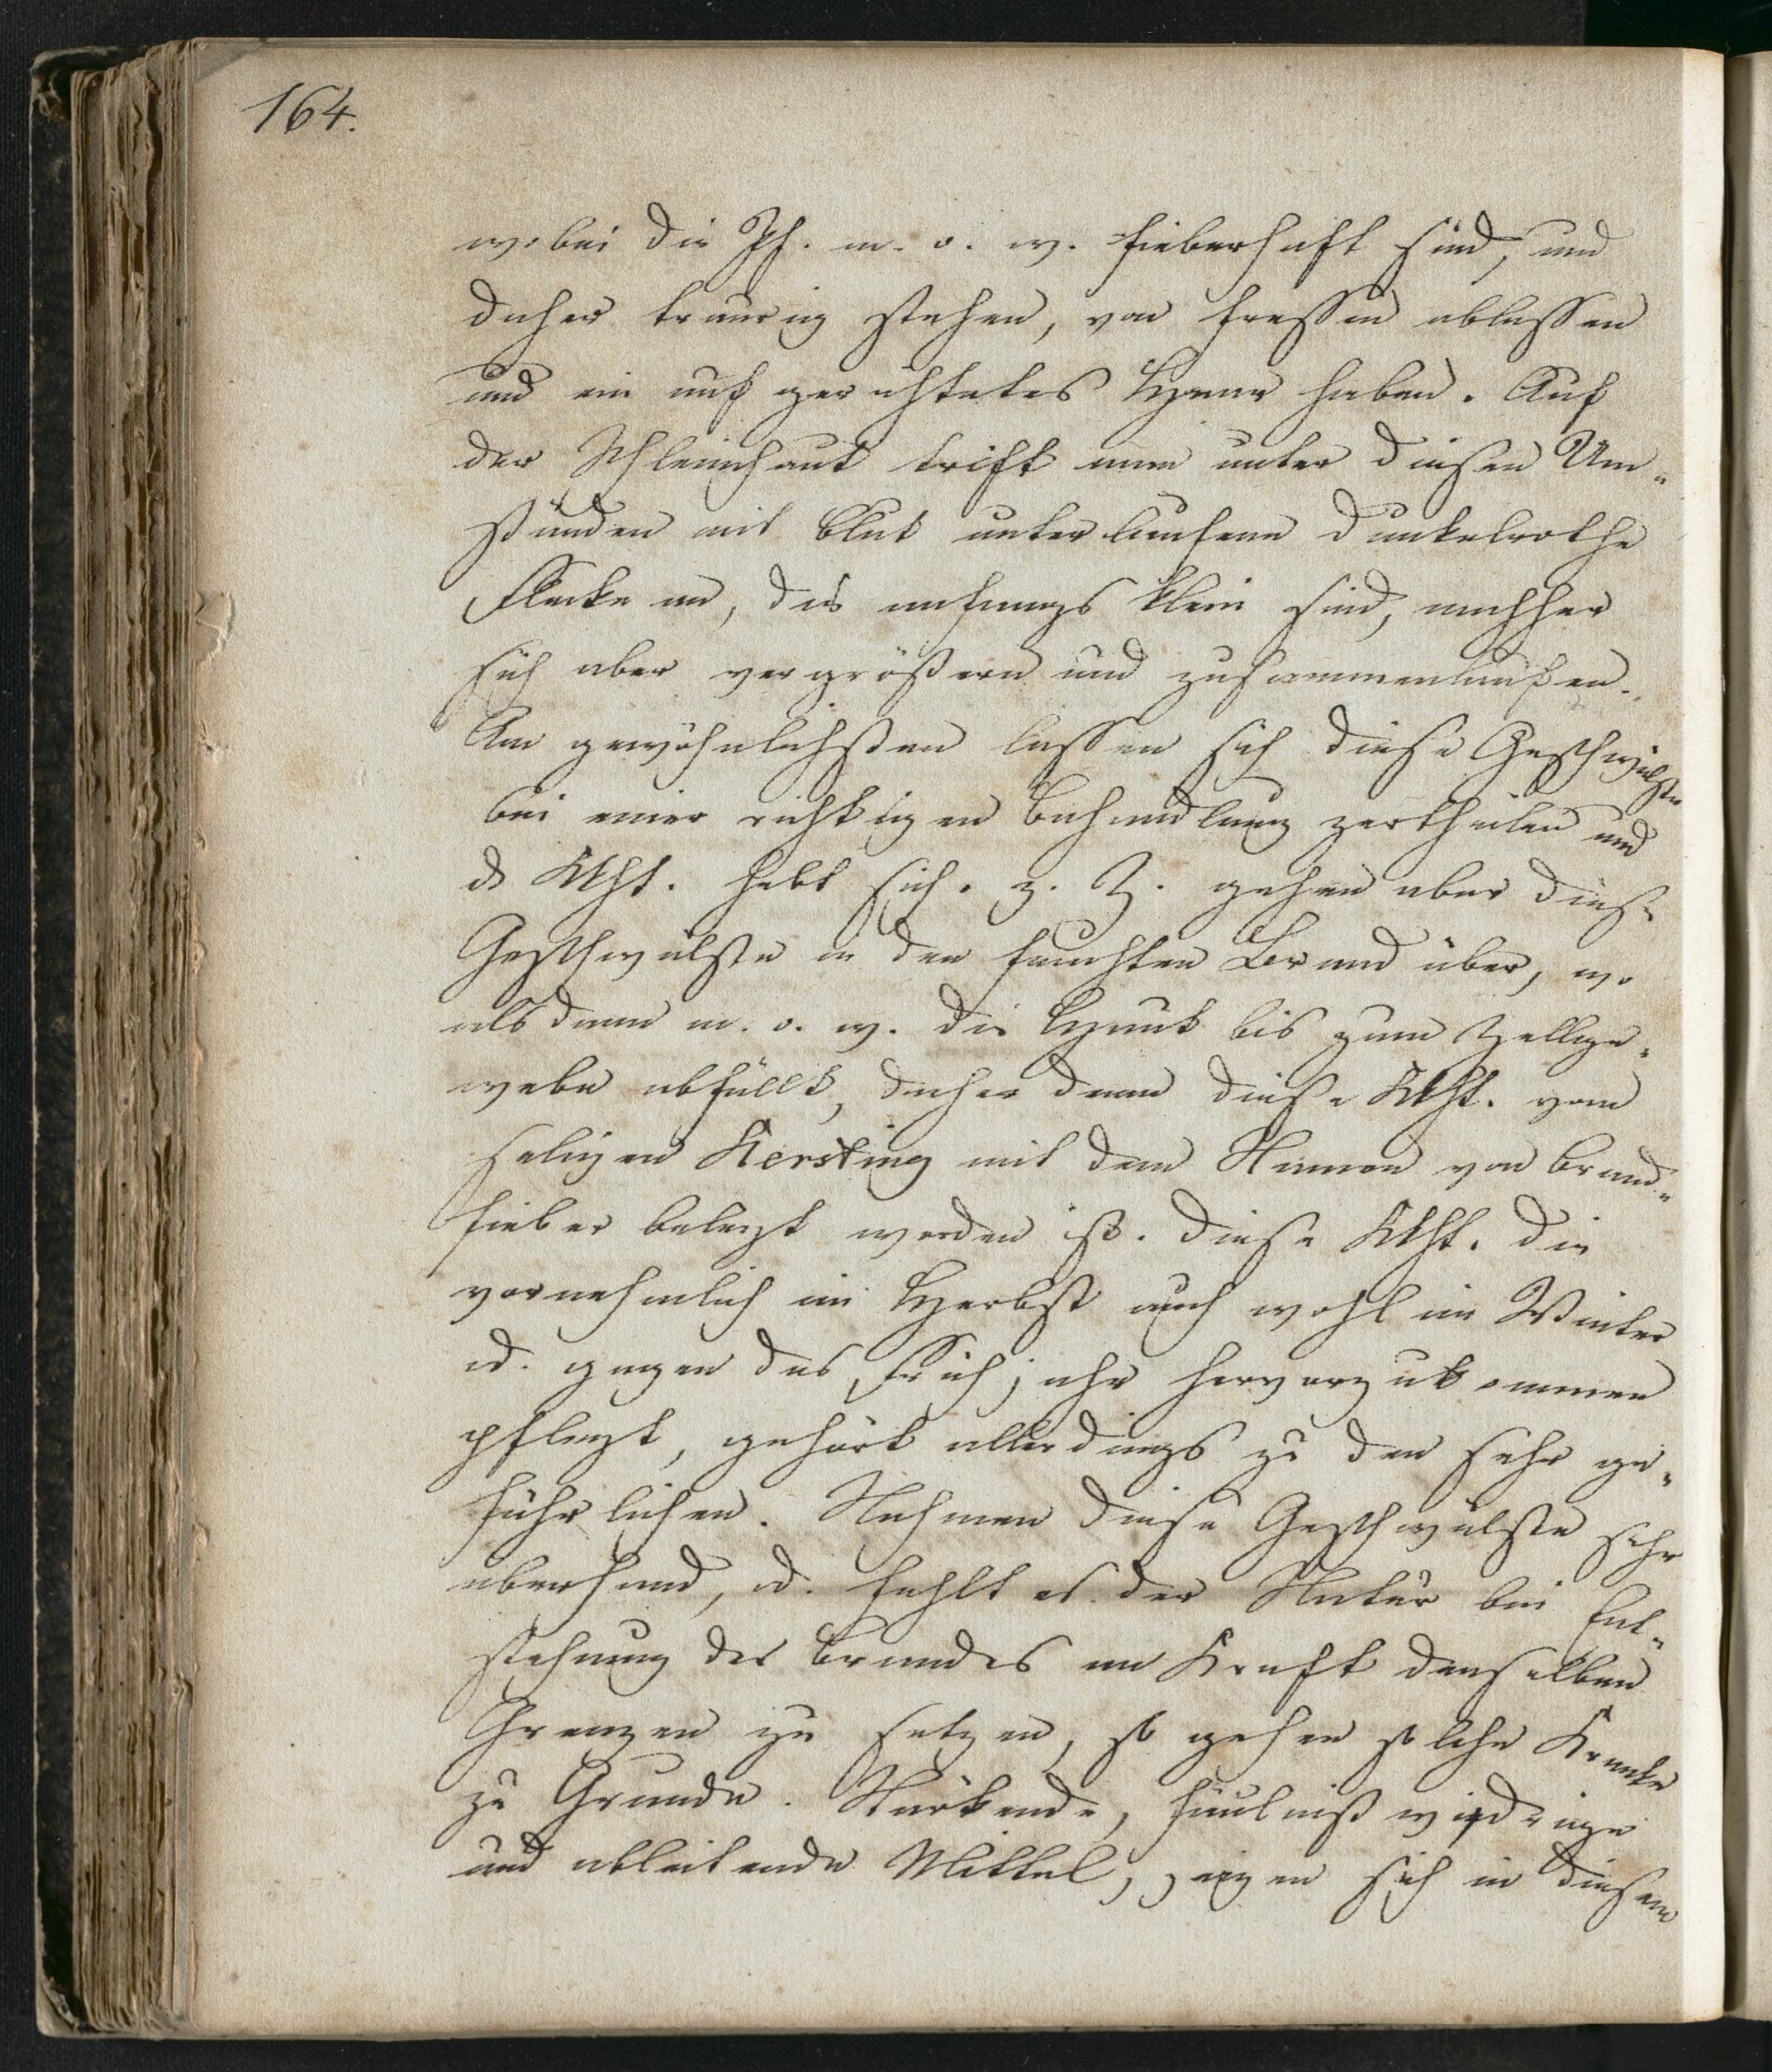 164.
wobei die Pf. m. o. w. fieberhaft sind, und
daher traurig stehen, von fressen ablassen
und ein auf gerichtetes Haar haben. Auf
der Schleimhaut trift man unter diesen Um-
ständen mit Blut unterlaufene dunkelrothe
Flecke an, die anfangs klein sind, nachher
sich aber vergrößern und zusammenlaufen.
Am gewöhnlichsten lassen sich diese Geschwülste
bei einer richtigen Behandlung zertheilen und
d Kkht. hebt sich. z. Z. gehen aber diese
Geschwülste in den feuchten Brand über, wo
alsdann m. o. w. die Haut bis zum Zellge-
webe abfällt, daher denn diese Kkht. vom
seligen Kersting mit dem Namen von Brand-
fieber belegt worden ist. diese Kkht. die
vornehmlich im Herbst auch wohl im Winter
od. gegen das Früh jahr hervorzukommen
pflegt, gehört allerdings zu den sehr ge-
fährlichen. Nehmen diese Geschwülste sehr
überhand, od. fehlt es der Natur bei Ent-
stehung des Brandes an Kraft denselben
Grenzen zu setzen, so gehen solche Kranke
zu Grunde. Stärkende, fäulniß widrige
und ableitende Mittel, zeigen sich in diesem